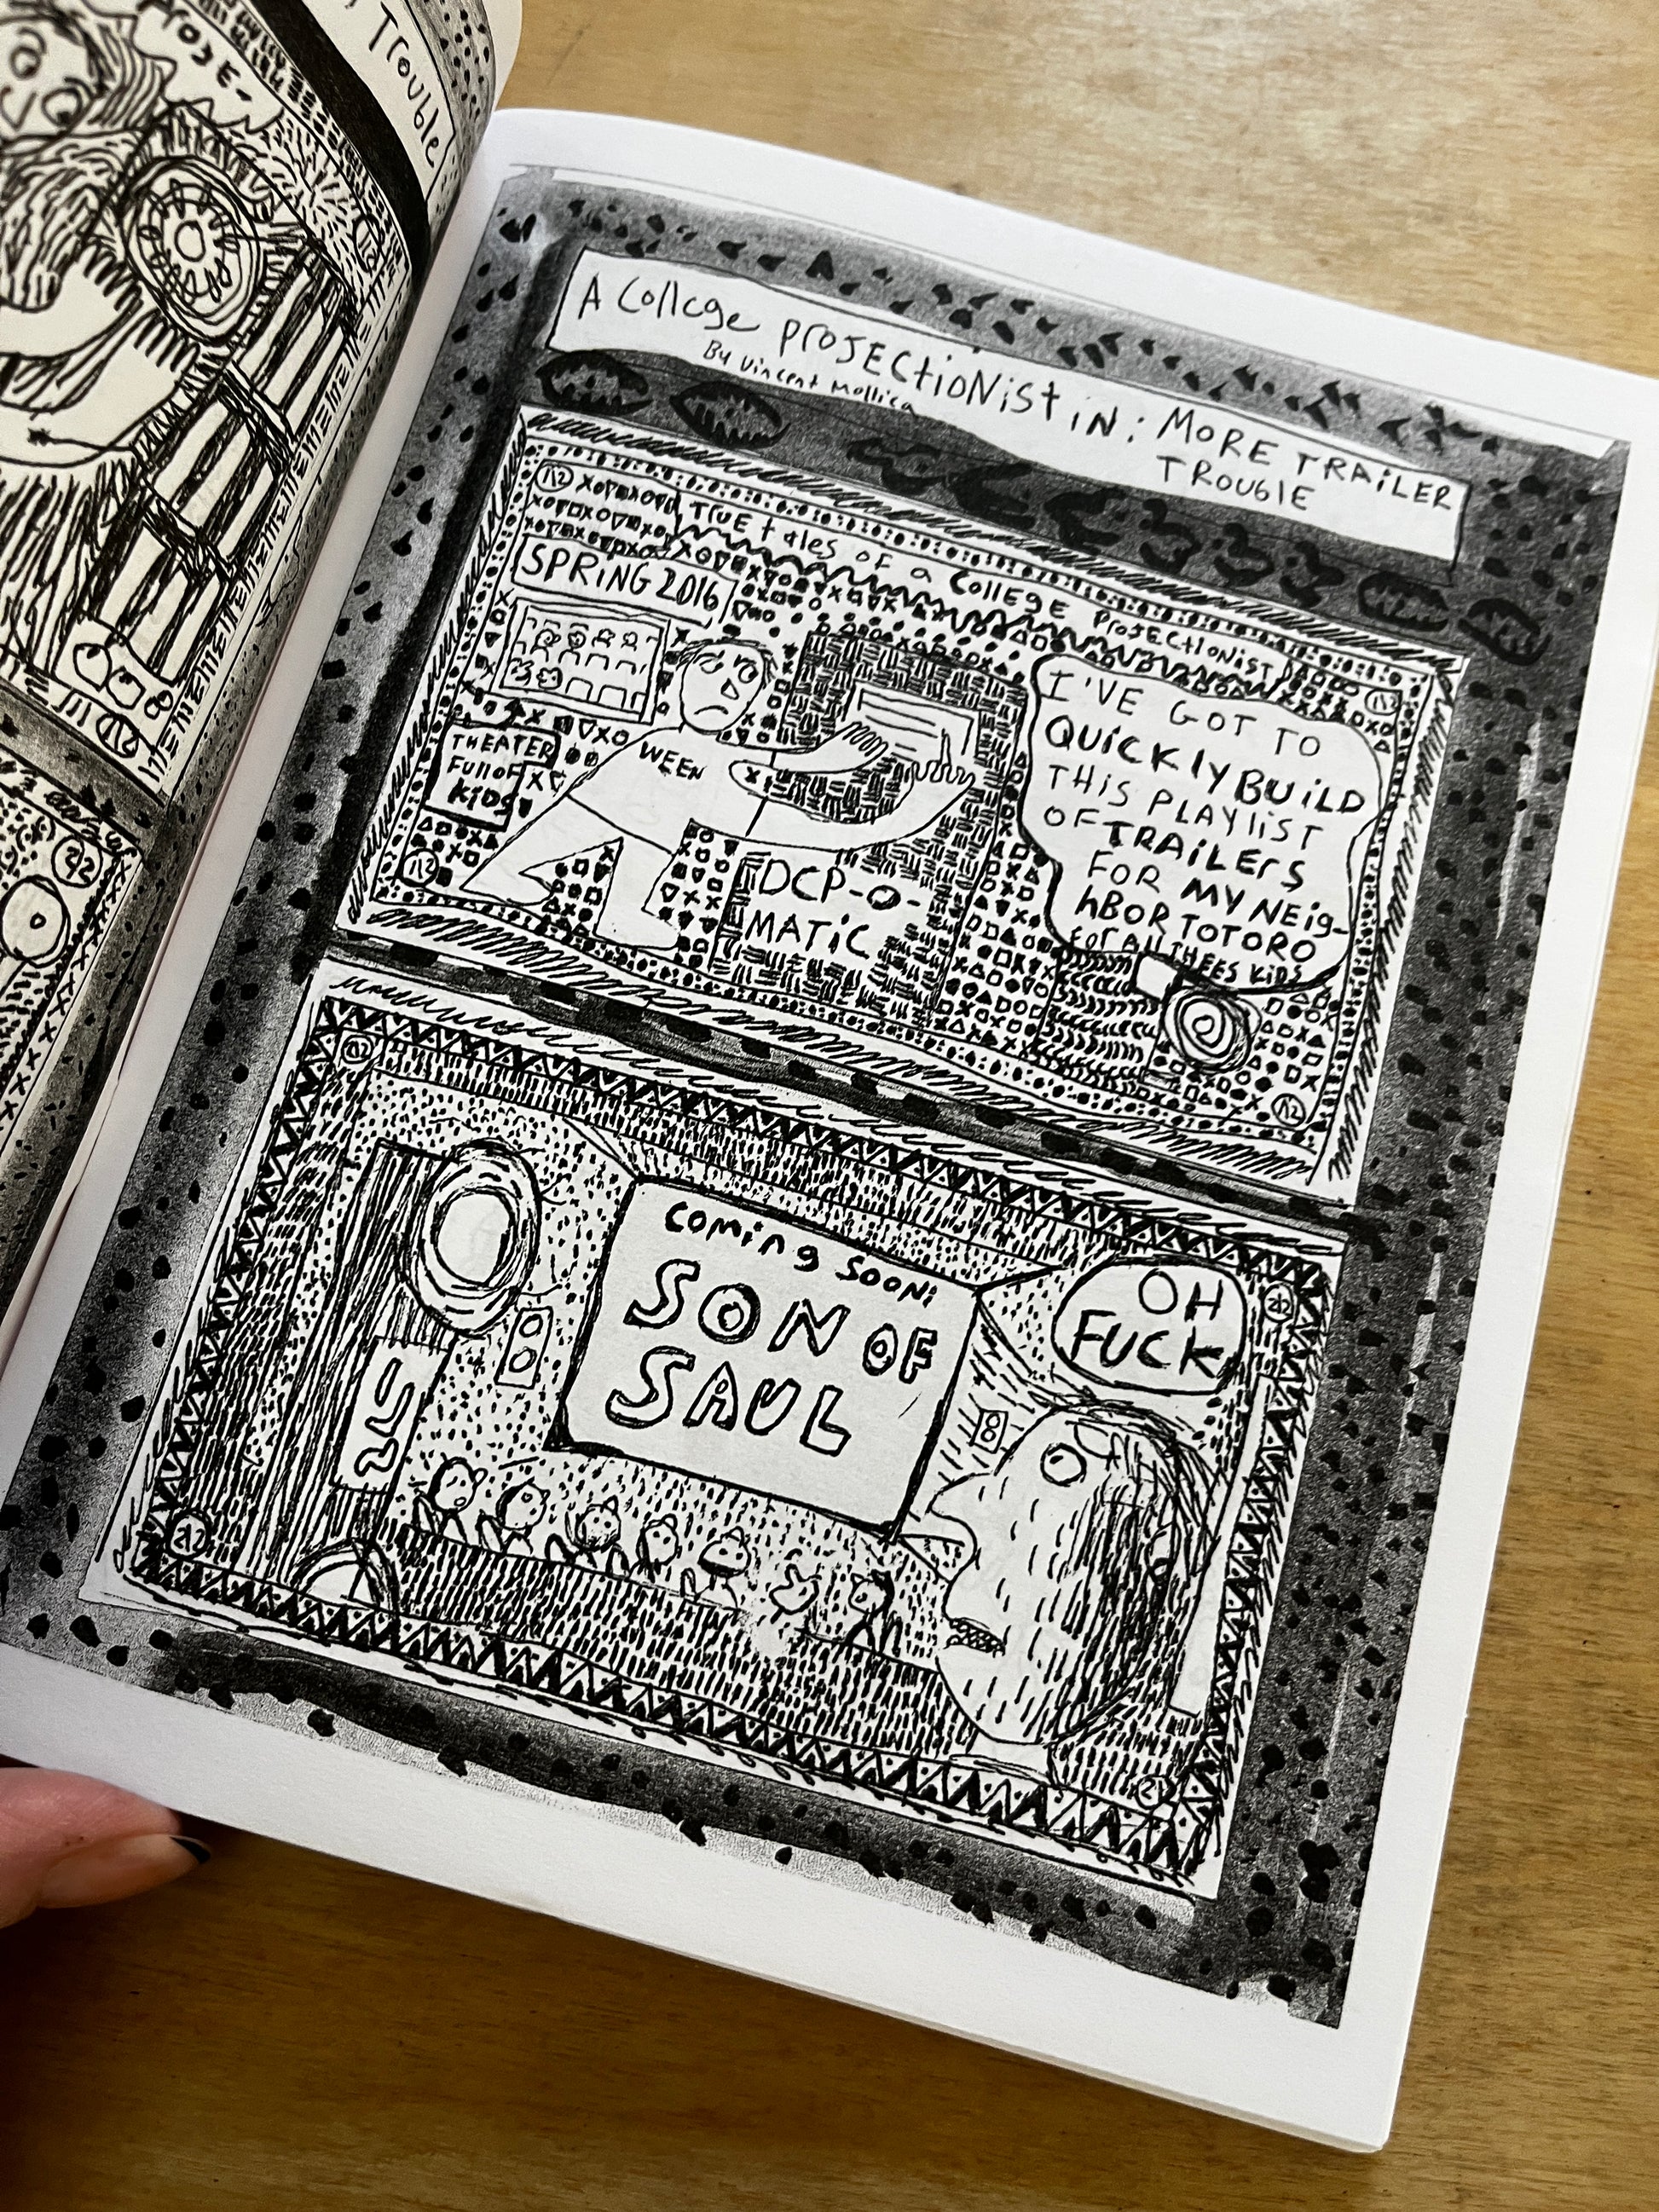 Trouble
A College PROJECTiONist iN: MORE TRAiLER
TROUblE
By Vincent Mollica
1/2
TRUE tales of a COllEGE PROJECTiONiST
SPRiNG 2016
1/2
THEATER
Full OF
KiDS
WEEN
DCP-O-
MATiC
I'VE GOT TO
QUiCKlY BUiLD
THiS PLAYliST
OF TRAiLErS
FOR MY NEiG-
hBOR TOTORO
for All THEES KiDS
1/2
1/2
2/2
Coming Soon:
SON OF
SAUL
OH
FUCK
2/2
2/2
2/2